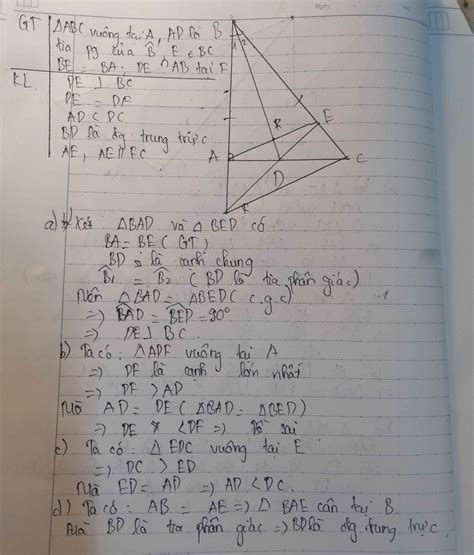 GT | ΔABC vuông tại A, AD là B
tia pg của B̂ E ∈ BC
BE = BA. DE ∩ AB tại F
KL | DE ⊥ BC
DE = DF
AD < DC
BD là đg trung trực
AE, AE // FC
B
1 2
K
E
A
D
C
F
a) Xét ΔBAD và ΔBED có
BA = BE (GT)
BD là cạnh chung
B̂1 = B̂2 (BD là tia phân giác)
Nên ΔBAD = ΔBED (c.g.c)
=> BAD = BED = 90°
=> DE ⊥ BC.
b) Ta có: ΔADF vuông tại A
=> DF là cạnh lớn nhất
=> DF > AD
Mà AD = DE (ΔBAD = ΔBED)
=> DE < DF => Đề sai
c) Ta có: Δ EDC vuông tại E
=> DC > ED
Mà ED = AD => AD < DC.
d) Ta có: AB = AE => Δ BAE cân tại B
Mà BD là tia phân giác => BD là đg trung trực